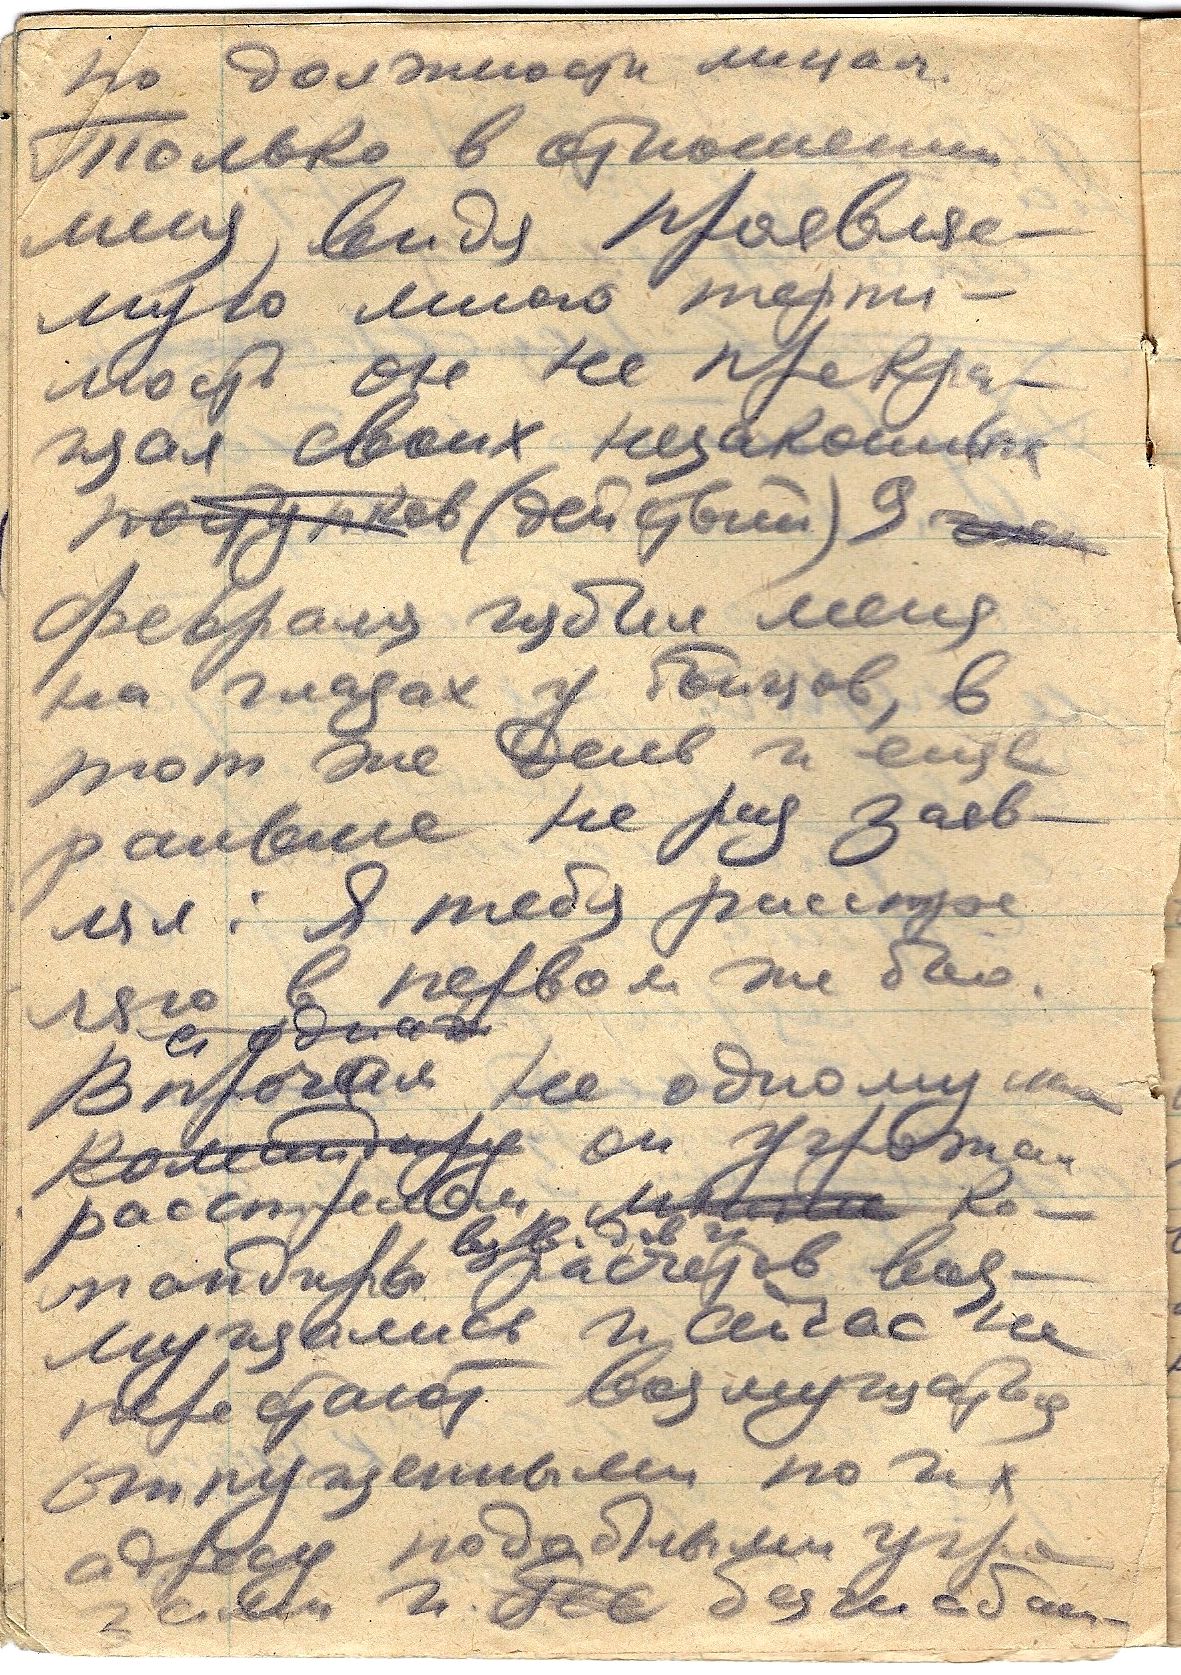 по должности лицам.
Только в отношении
меня, видя проявляе-
мую мною терпи-
мость он не прекра-
щал своих незаконных
поступков (действий) 9
февраля избил меня
на глазах у бойцов, в
тот же день и еще
раньше не раз заяв-
лял: Я тебя расстре
ляю в первом же бою.
Впрочем не одному
командиру он угрожал
расстрелом, ко-
мандиры взв. и
расчетов воз-
мущались и сейчас не
перестают возмущаться
отпущенными по их
адресу подобными угро
зами и безшабаш-